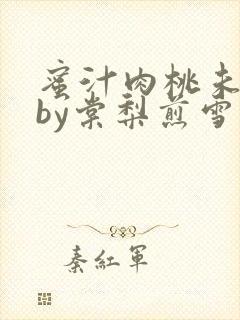 蜜汁肉桃未
by棠梨煎雪
秦紅軍